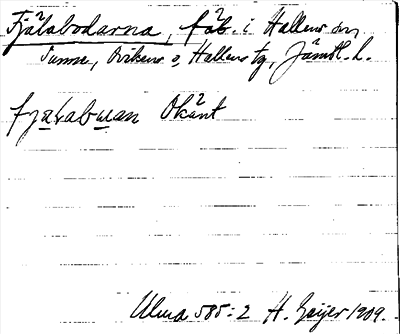 Fjälabodarna, fäb. i Hallens sn
Sunne, Ovikens o, Hallens tg, Jämtl. l.
fjalabuan Okänt
Ulma 585:2 H. Geijer 1909.